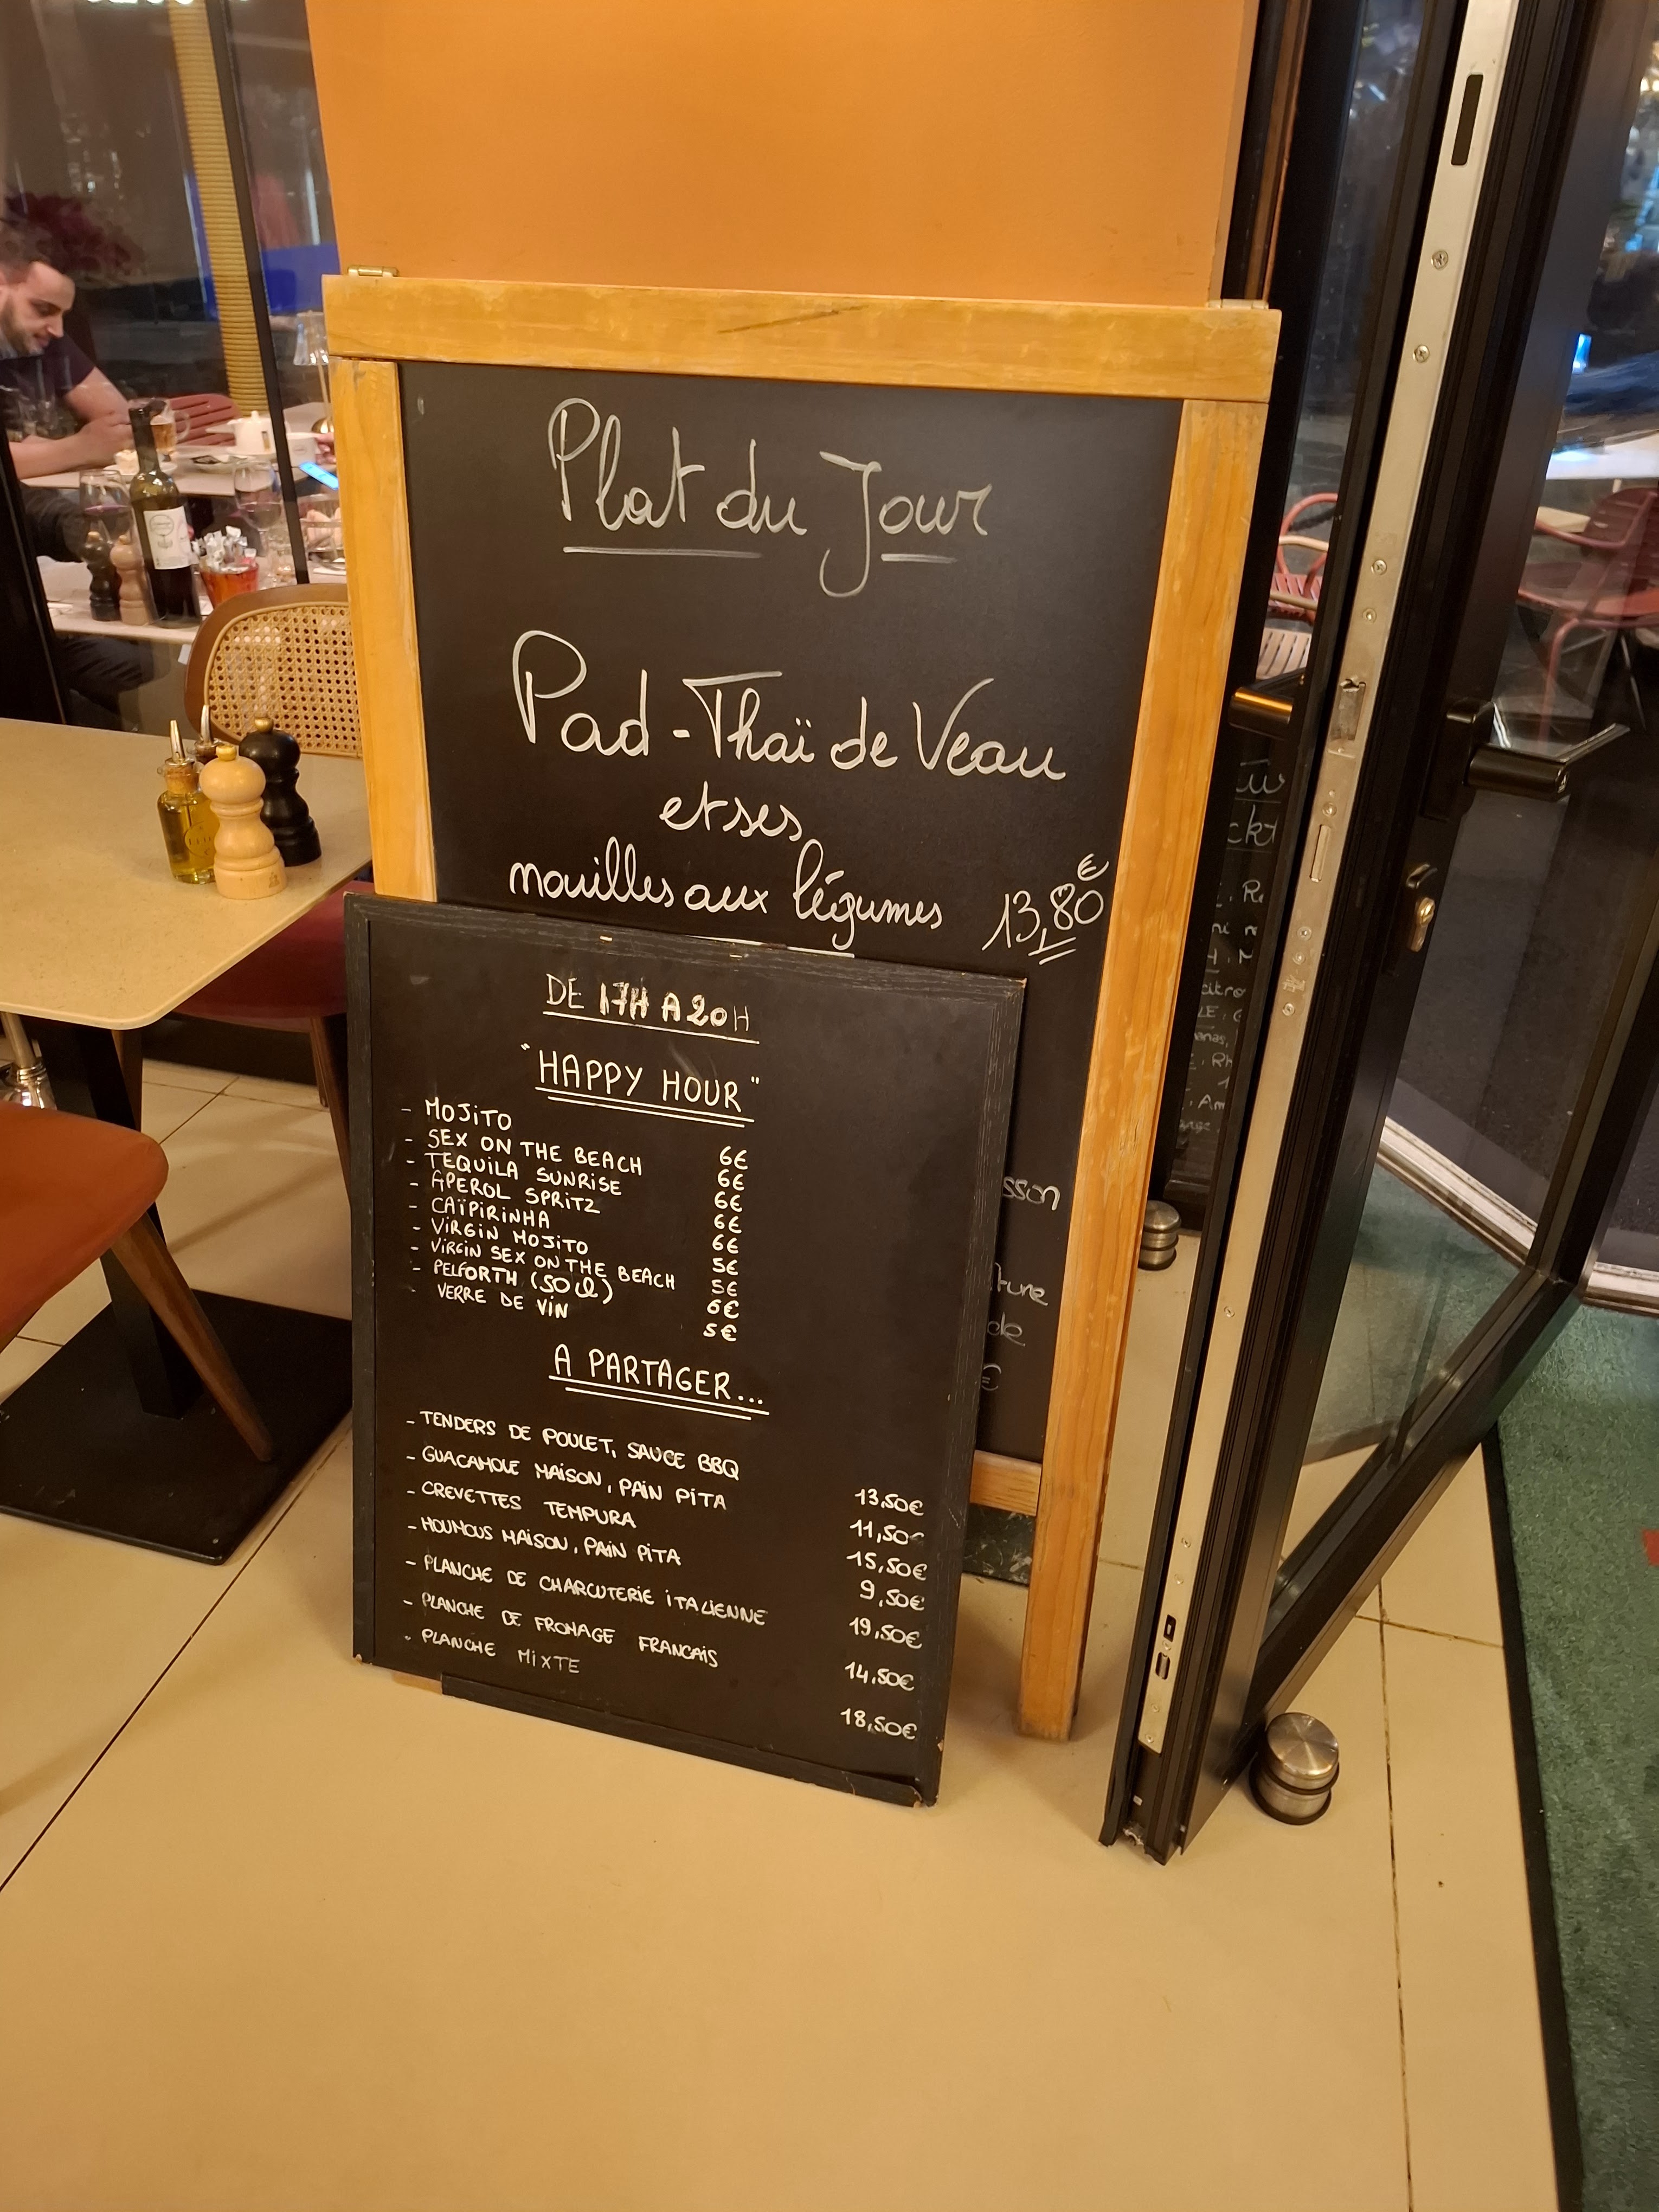 Plat du Jour
Pad-Thaï de Veau
et ses
nouilles aux légumes 13,80€
DE 17H A 20H
"HAPPY HOUR"
- MOJITO 6€
- SEX ON THE BEACH 6€
- TEQUILA SUNRISE 6€
- APEROL SPRITZ 6€
- CAÏPIRINHA 6€
- VIRGIN MOJITO 5€
- VIRGIN SEX ON THE BEACH 5€
- PELFORTH (50cl) 6€
- VERRE DE VIN 5€
A PARTAGER...
- TENDERS DE POULET, SAUCE BBQ 13,50€
- GUACAMOLE MAISON, PAIN PITA 11,50€
- CREVETTES TEMPURA 15,50€
- HOUMOUS MAISON, PAIN PITA 9,50€
- PLANCHE DE CHARCUTERIE ITALIENNE 19,50€
- PLANCHE DE FROMAGE FRANCAIS 14,50€
- PLANCHE MIXTE 18,50€
sson
ture
de
€